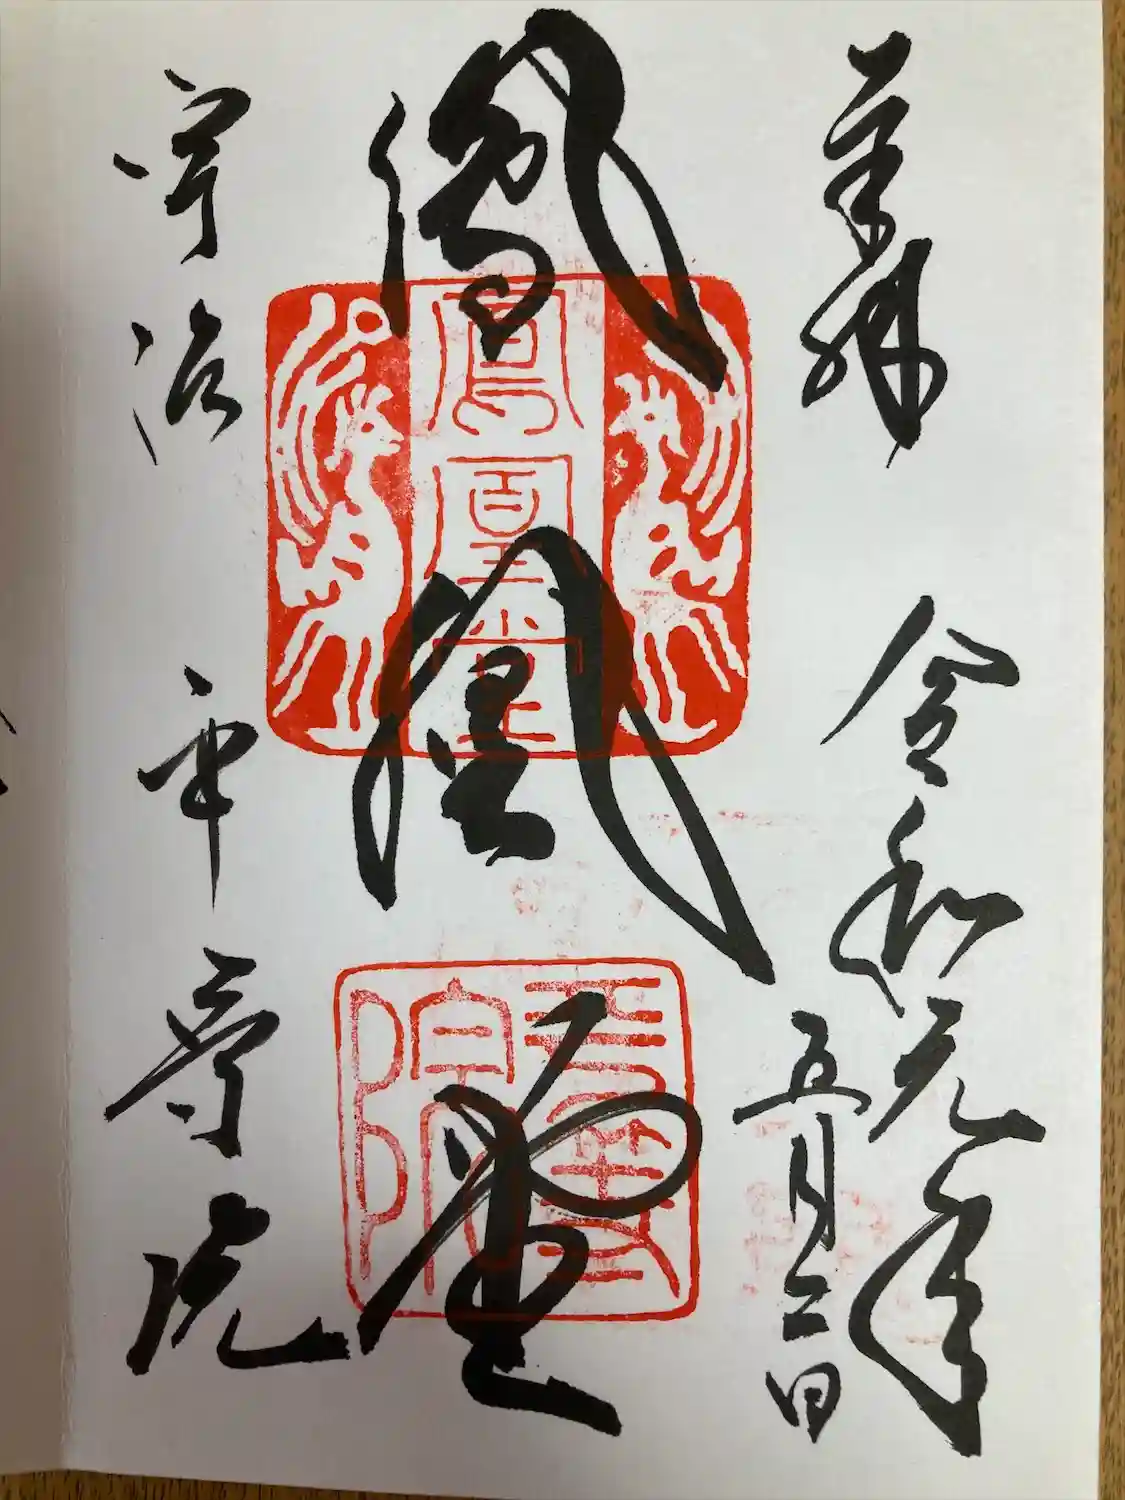 奉拝
令和元年
五月二日
鳳凰堂
鳳凰堂
平等院
宇治
平等院